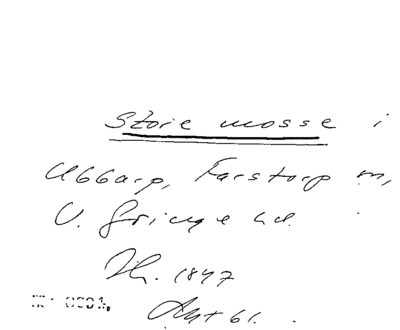 Store mosse i
Ubbarp, Farstorp m,
V. Göinge hd.
Th. 1847
Ant 61.